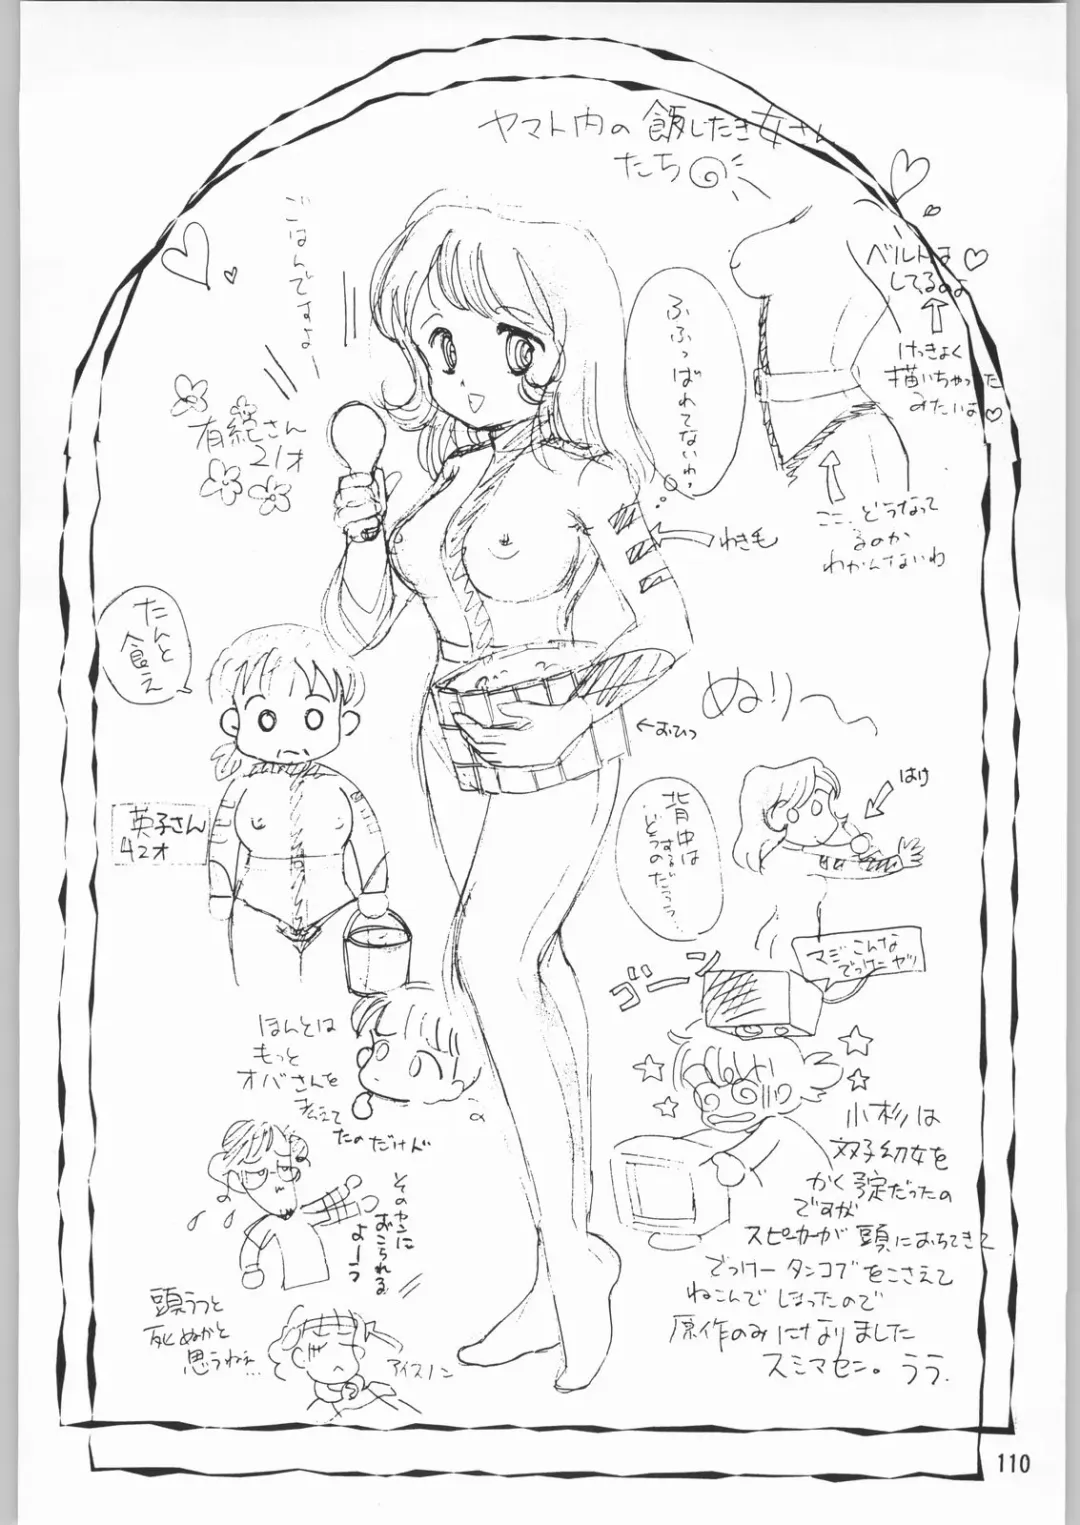 ヤマト内の飯したき女さん
たち
ごはんですよー
有紀さん
21才
ふふっばれてないわ。
ベルトは
してるのよ
けっきょく
描いちゃった
みたいよ
ここ、どうなって
るのか
わかんないわ
わき毛
たんと
食え
英子さん
42才
←おひつ
ぬり〜〜
はけ
背中は
どうするの
だろう
マジこんな
でっけーヤツ
ゴーン
ほんとは
もっと
オバさんを
考えて
たのだけど
そのケンに
おこられる
よーう
頭うつと
死ぬかと
思うねぇ…
アイスノン
小杉は
双子幼女を
かく予定だったの
ですが
スピーカーが頭におちてきて
でっけータンコブをこさえて
ねこんでしまったので
原作のみになりました
スミマセン。うう.
110